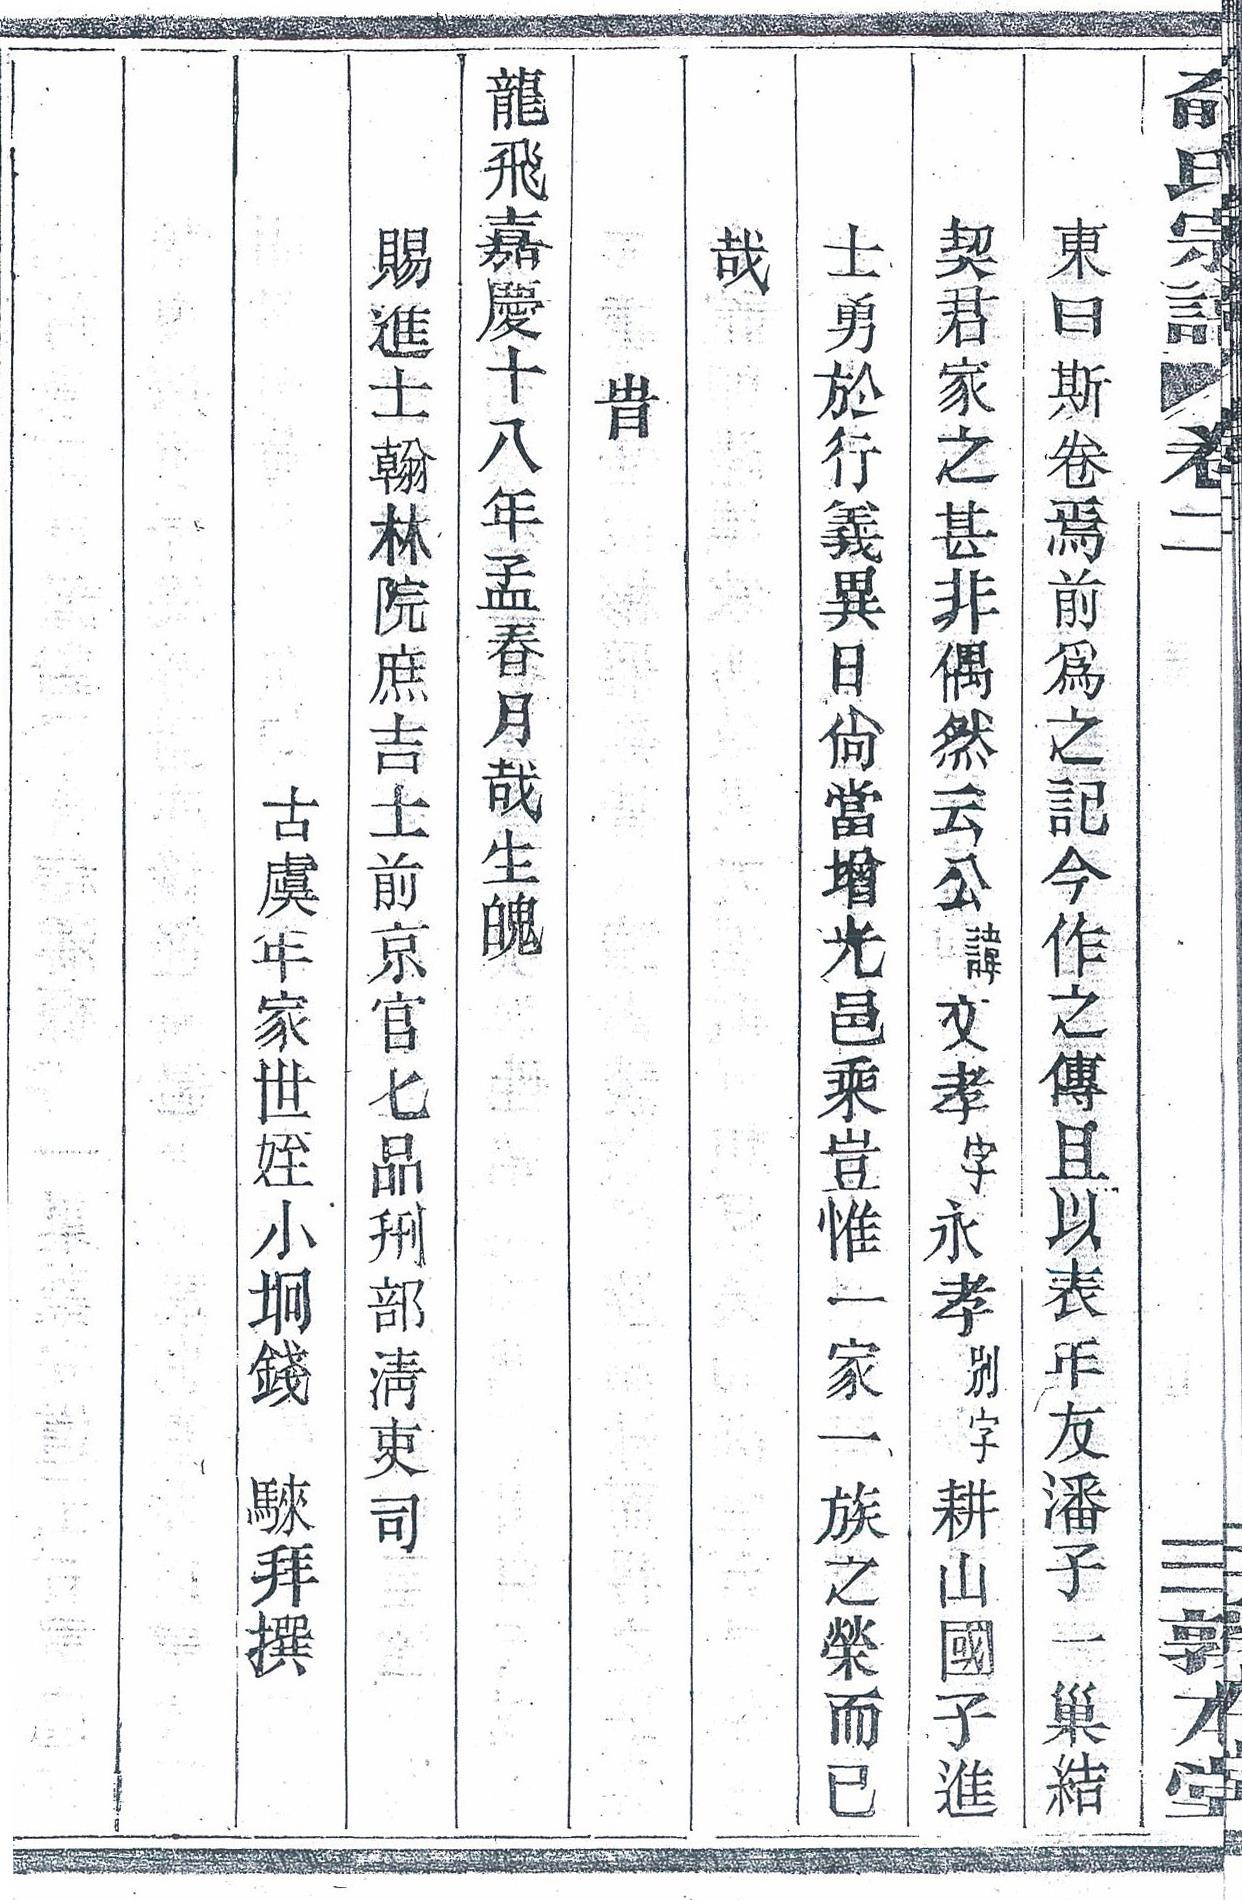 氏宗譜 卷二 三 敦本堂
東曰斯卷焉前爲之記今作之傳且以表年友潘子一巢結
契君家之甚非偶然云公諱文孝字永孝別字耕山國子進
士勇於行義異日尙當增光邑乘豈惟一家一族之榮而已
哉
旹
龍飛嘉慶十八年孟春月哉生魄
賜進士翰林院庶吉士前京官七品刑部淸吏司
古虞年家世姪小坰錢 騋拜撰